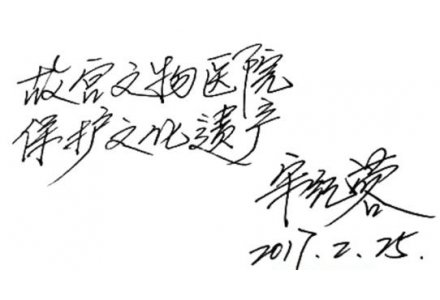 故宫文物医院
保护文化遗产
宋纪蓉
2017.2.25.